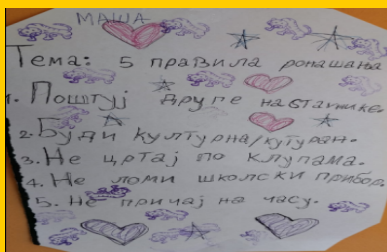 МАША
Тема: 5 правила понашања
1. Поштуј друге наставнике.
2. Буди културна/кутуран.
3. Не цртај по клупама.
4. Не ломи школски прибор.
5. Не причај на часу.